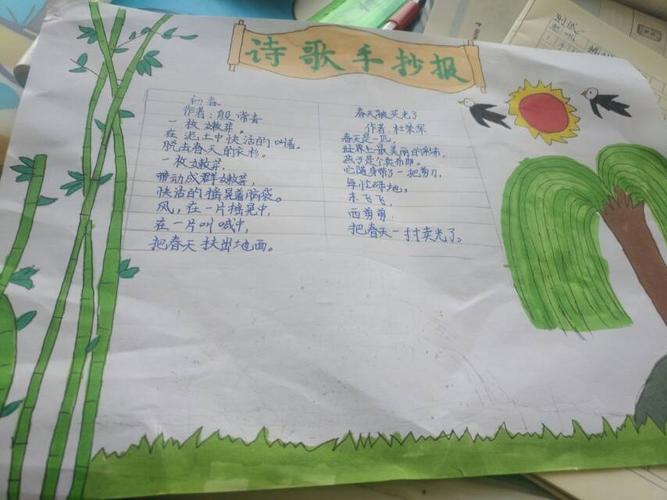 诗歌手抄报
初春
作者:殷常青
一枚嫩芽。
在泥土中快活的叫嚷。
脱去春天的衣衫。
一枚嫩芽,
带动成群嫩芽,
快活的摇晃着脑袋。
风,在一片摇晃中,
在一片叫喊中,
把春天扶出地面。
春天被卖光了
作者 杜荣琛
春天是一匹,
世界上最美丽的彩布,
燕子是个卖布郎。
它随身带了一把剪刀,
每忙碌地,
东飞飞,
西剪剪,
把春天一寸寸卖光了。